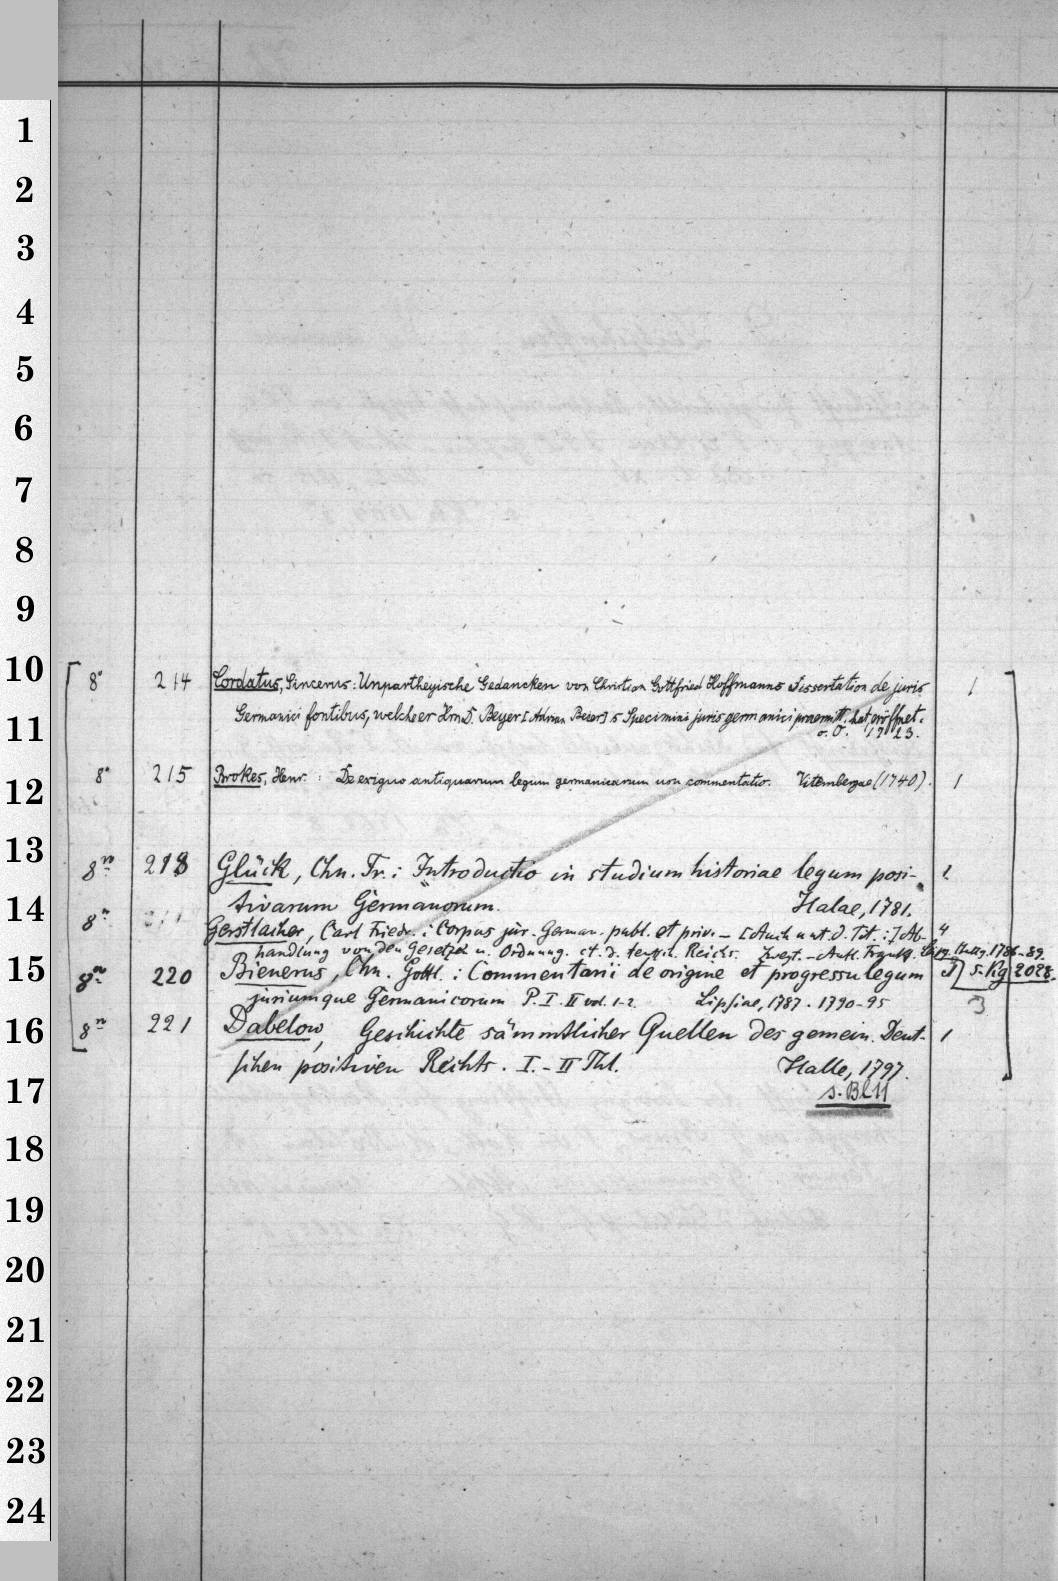 1
2
3
4
5
6
7
8
9
10
8° 214 Cordatus, Sincerus: Unpartheyische Gedancken von Christian Gottfried Hoffmanns Dissertation de juris 1
11
Germanici fontibus, welche er Hrn D. Beyer [Adrian Beier] s Specimini juris germanici praemitt. hat, eröffnet.
o. O. 1723.
12
8° 215 Brokes, Henr. : De exiguo antiquarum legum germanicarum usu commentatio. Vitembergae (1740). 1
13
8° 218 Glück, Chn. Fr.: Introductio in studium historiae legum posi- 1
14
tivarum Germanorum. Halae, 1781.
8° Gerstlacher, Carl Friedr. : Corpus jur. German. publ. et priv. — [Auch unt. d. Tit. :] Ab- 4
handlung von den Gesetzen u. Ordnung. et. d. teutsch. Reichs. Zweyt. — Aufl. Frankf. 1786-89.
15
8° 220 Bienerus, Chn. Gottl. : Commentarii de origine et progressu legum 3] s. Rg 2028.
juriumque Germanicorum P. I. II vol. 1-2. Lipsiae, 1787. 1790-95 3
16
8° 221 Dabelow, Geschichte sämmtlicher Quellen des gemein. Deut- 1
schen positiven Rechts. I. - II Thl. Halle, 1797.
17
s. Bl 11
18
19
20
21
22
23
24